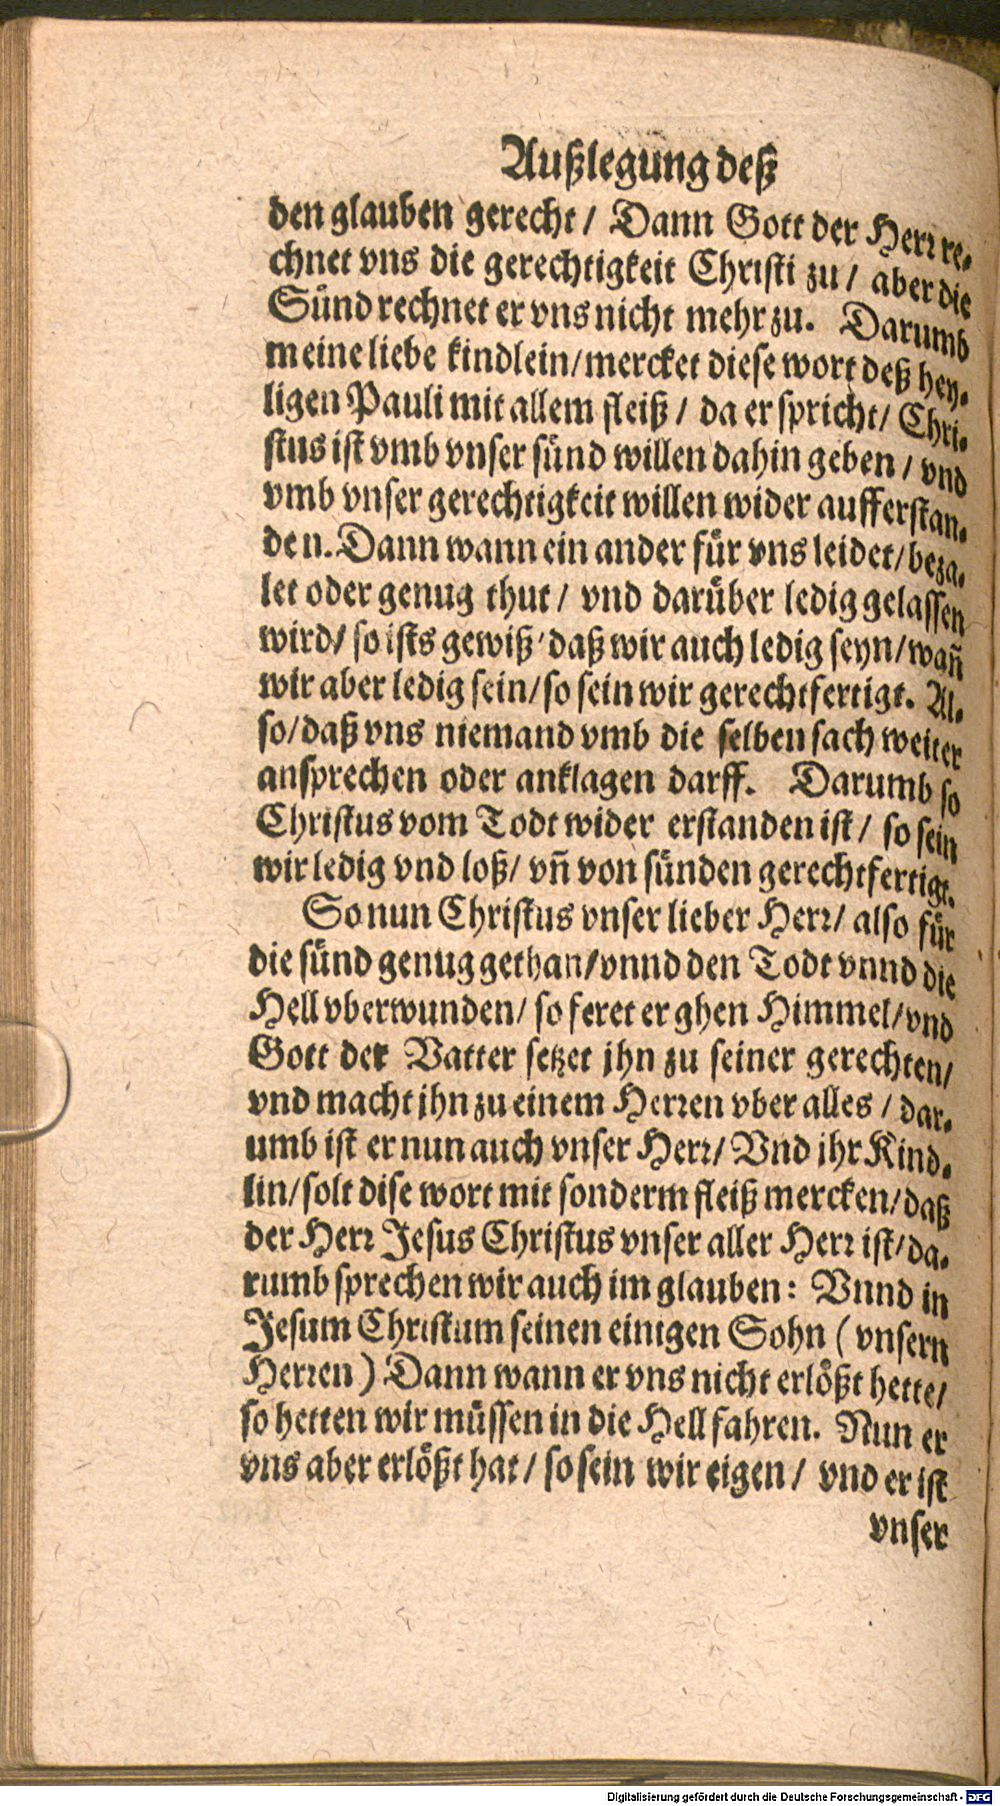 Außlegung deß
den glauben gerecht / Dann Gott der Herr re-
chnet vns die gerechtigkeit Christi zu / aber die
Sünd rechnet er vns nicht mehr zu. Darumb
meine liebe kindlein / mercket diese wort deß hey-
ligen Pauli mit allem fleiß / da er spricht / Chri-
stus ist vmb vnser sünd willen dahin geben / vnd
vmb vnser gerechtigkeit willen wider aufferstan-
den. Dann wann ein ander für vns leidet / beza-
let oder genug thut / vnd darüber ledig gelassen
wird / so ists gewiß / daß wir auch ledig seyn / wañ
wir aber ledig sein / so sein wir gerechtfertigt. Al-
so / daß vns niemand vmb die selben sach weiter
ansprechen oder anklagen darff. Darumb so
Christus vom Todt wider erstanden ist / so sein
wir ledig vnd loß / vñ von sünden gerechtfertigt.
So nun Christus vnser lieber Herr / also für
die sünd genug gethan / vnnd den Todt vnnd die
Hell vberwunden / so feret er ghen Himmel / vnd
Gott der Vatter setzet jhn zu seiner gerechten /
vnd macht jhn zu einem Herren vber alles / dar-
umb ist er nun auch vnser Herr / Vnd jhr Kind-
lin / solt dise wort mit sonderm fleiß mercken / daß
der Herr Jesus Christus vnser aller Herr ist / da-
rumb sprechen wir auch im glauben : Vnnd in
Jesum Christum seinen einigen Sohn ( vnsern
Herren ) Dann wann er vns nicht erlößt hette /
so hetten wir müssen in die Hell fahren. Nun er
vns aber erlößt hat / so sein wir eigen / vnd er ist
vnser
Digitalisierung gefördert durch die Deutsche Forschungsgemeinschaft - DFG